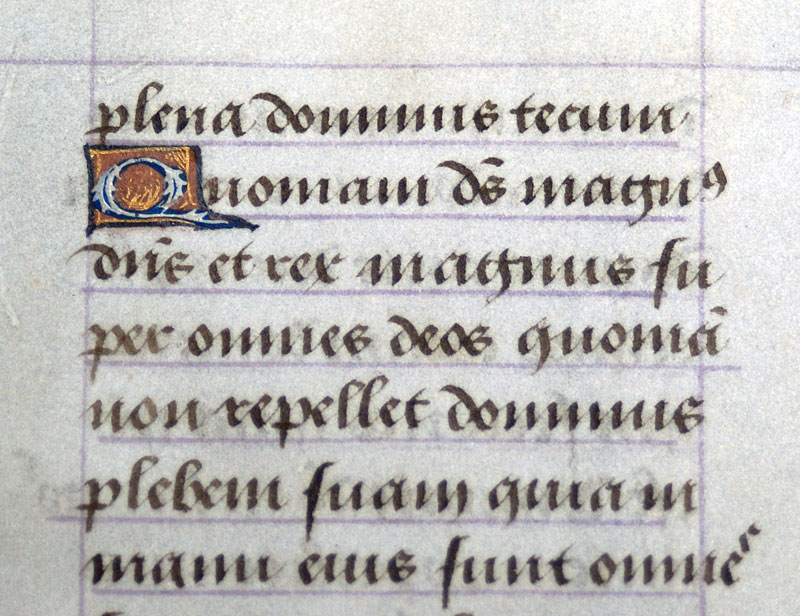 plena dominus tecum
Quoniam ds̄ magnꝰ
dn̄s et rex magnus su
per omnes deos quoniā
non repellet dominus
plebem suam quia in
manu eius sunt omnes